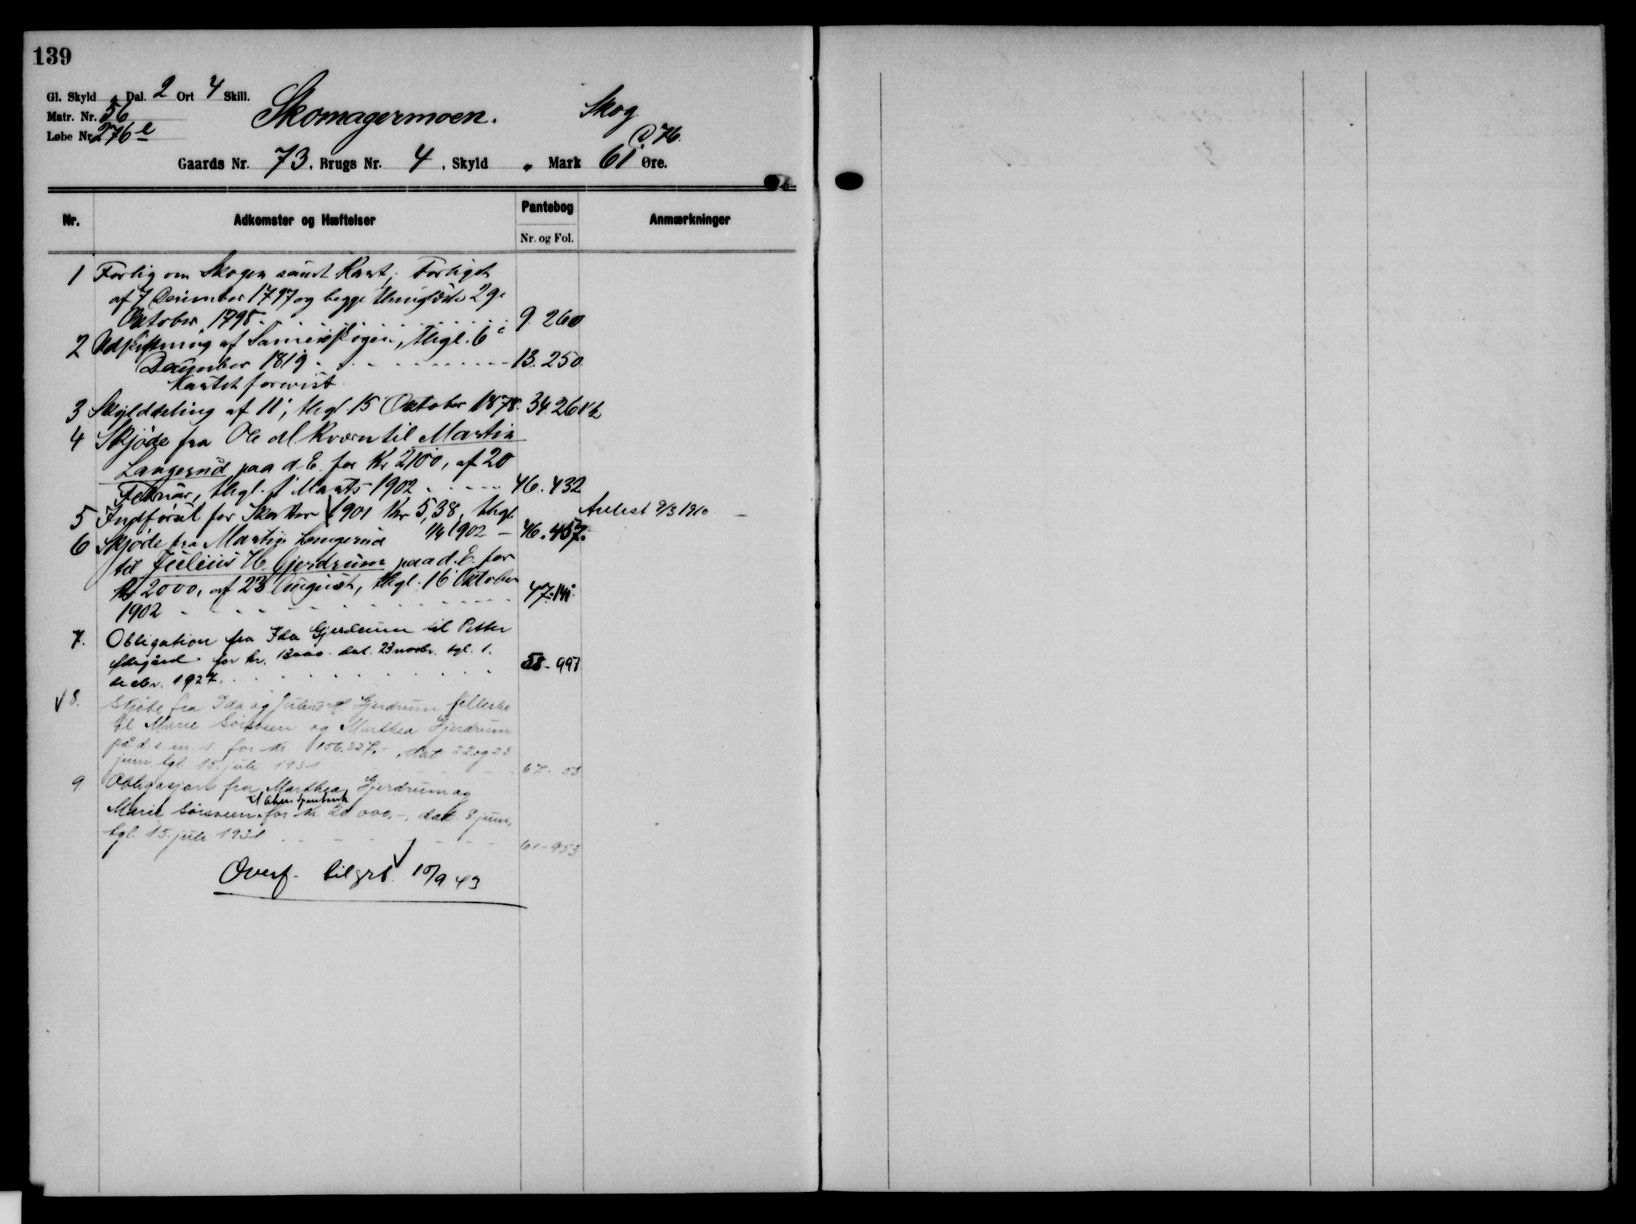 139
Gl. Skyld " Dal. 2 Ort 4 Skill.
Matr. Nr. 56
Løbe Nr. 276 e
Skomagermoen.
Skog
Gaards Nr. 73, Brugs Nr. 4, Skyld " Mark 61 Øre.
Nr. Adkomster og Hæftelser Pantebog Anmærkninger
Nr. og Fol.
1 Forlig om Skogen samt Kart; Forliget
af 7 December 1797 og begge thinglæste 2
Oktober 1798. 9. 260
2 Udskiftning af Sameieskogen, thgl. 6
December 1819 13. 250
Kartet forevist
3 Skylddeling af 11, thgl 15 Oktober 1878. 34 261
4 Skjøde fra Ole M. Kværn til Martin
Langerud paa d. E. for Kr 2100, af 20
Februar, thgl. 1 Marts 1902 46. 432
5 Indførsel for Skatter 1901 Kr 5,38, thgl
1/4 1902 - 46. 457. Avlest 9/3 1910
6 Skjøde fra Martin Langerud
til Julius H. Gjerdrum paa d. E. for
Kr 2000, af 23 August, thgl. 16 Oktober
1902 47. 141
7. Obligation fra Ida Gjerdrum til Petter
for kr. 13000. dat. 23 novbr. tgl. 1.
decbr. 1927. 58 - 997
8. Skjøte fra Ida og Julius H Gjerdrum fellesbo
til Marie Sørsveen og Marthea Gjerdrum
på d. e. m. v. for kr. dat 22 og 23
juni tgl 15. juli 1931 67 - 53
9 Obligasjon fra Marthea Gjerdrum og
Marie Sørsveen til Aker Sparebank for kr. 20 000,-, dat 8 juni,
tgl. 15. juli 1931 61 - 953
Overf. til grb. 10/9 43